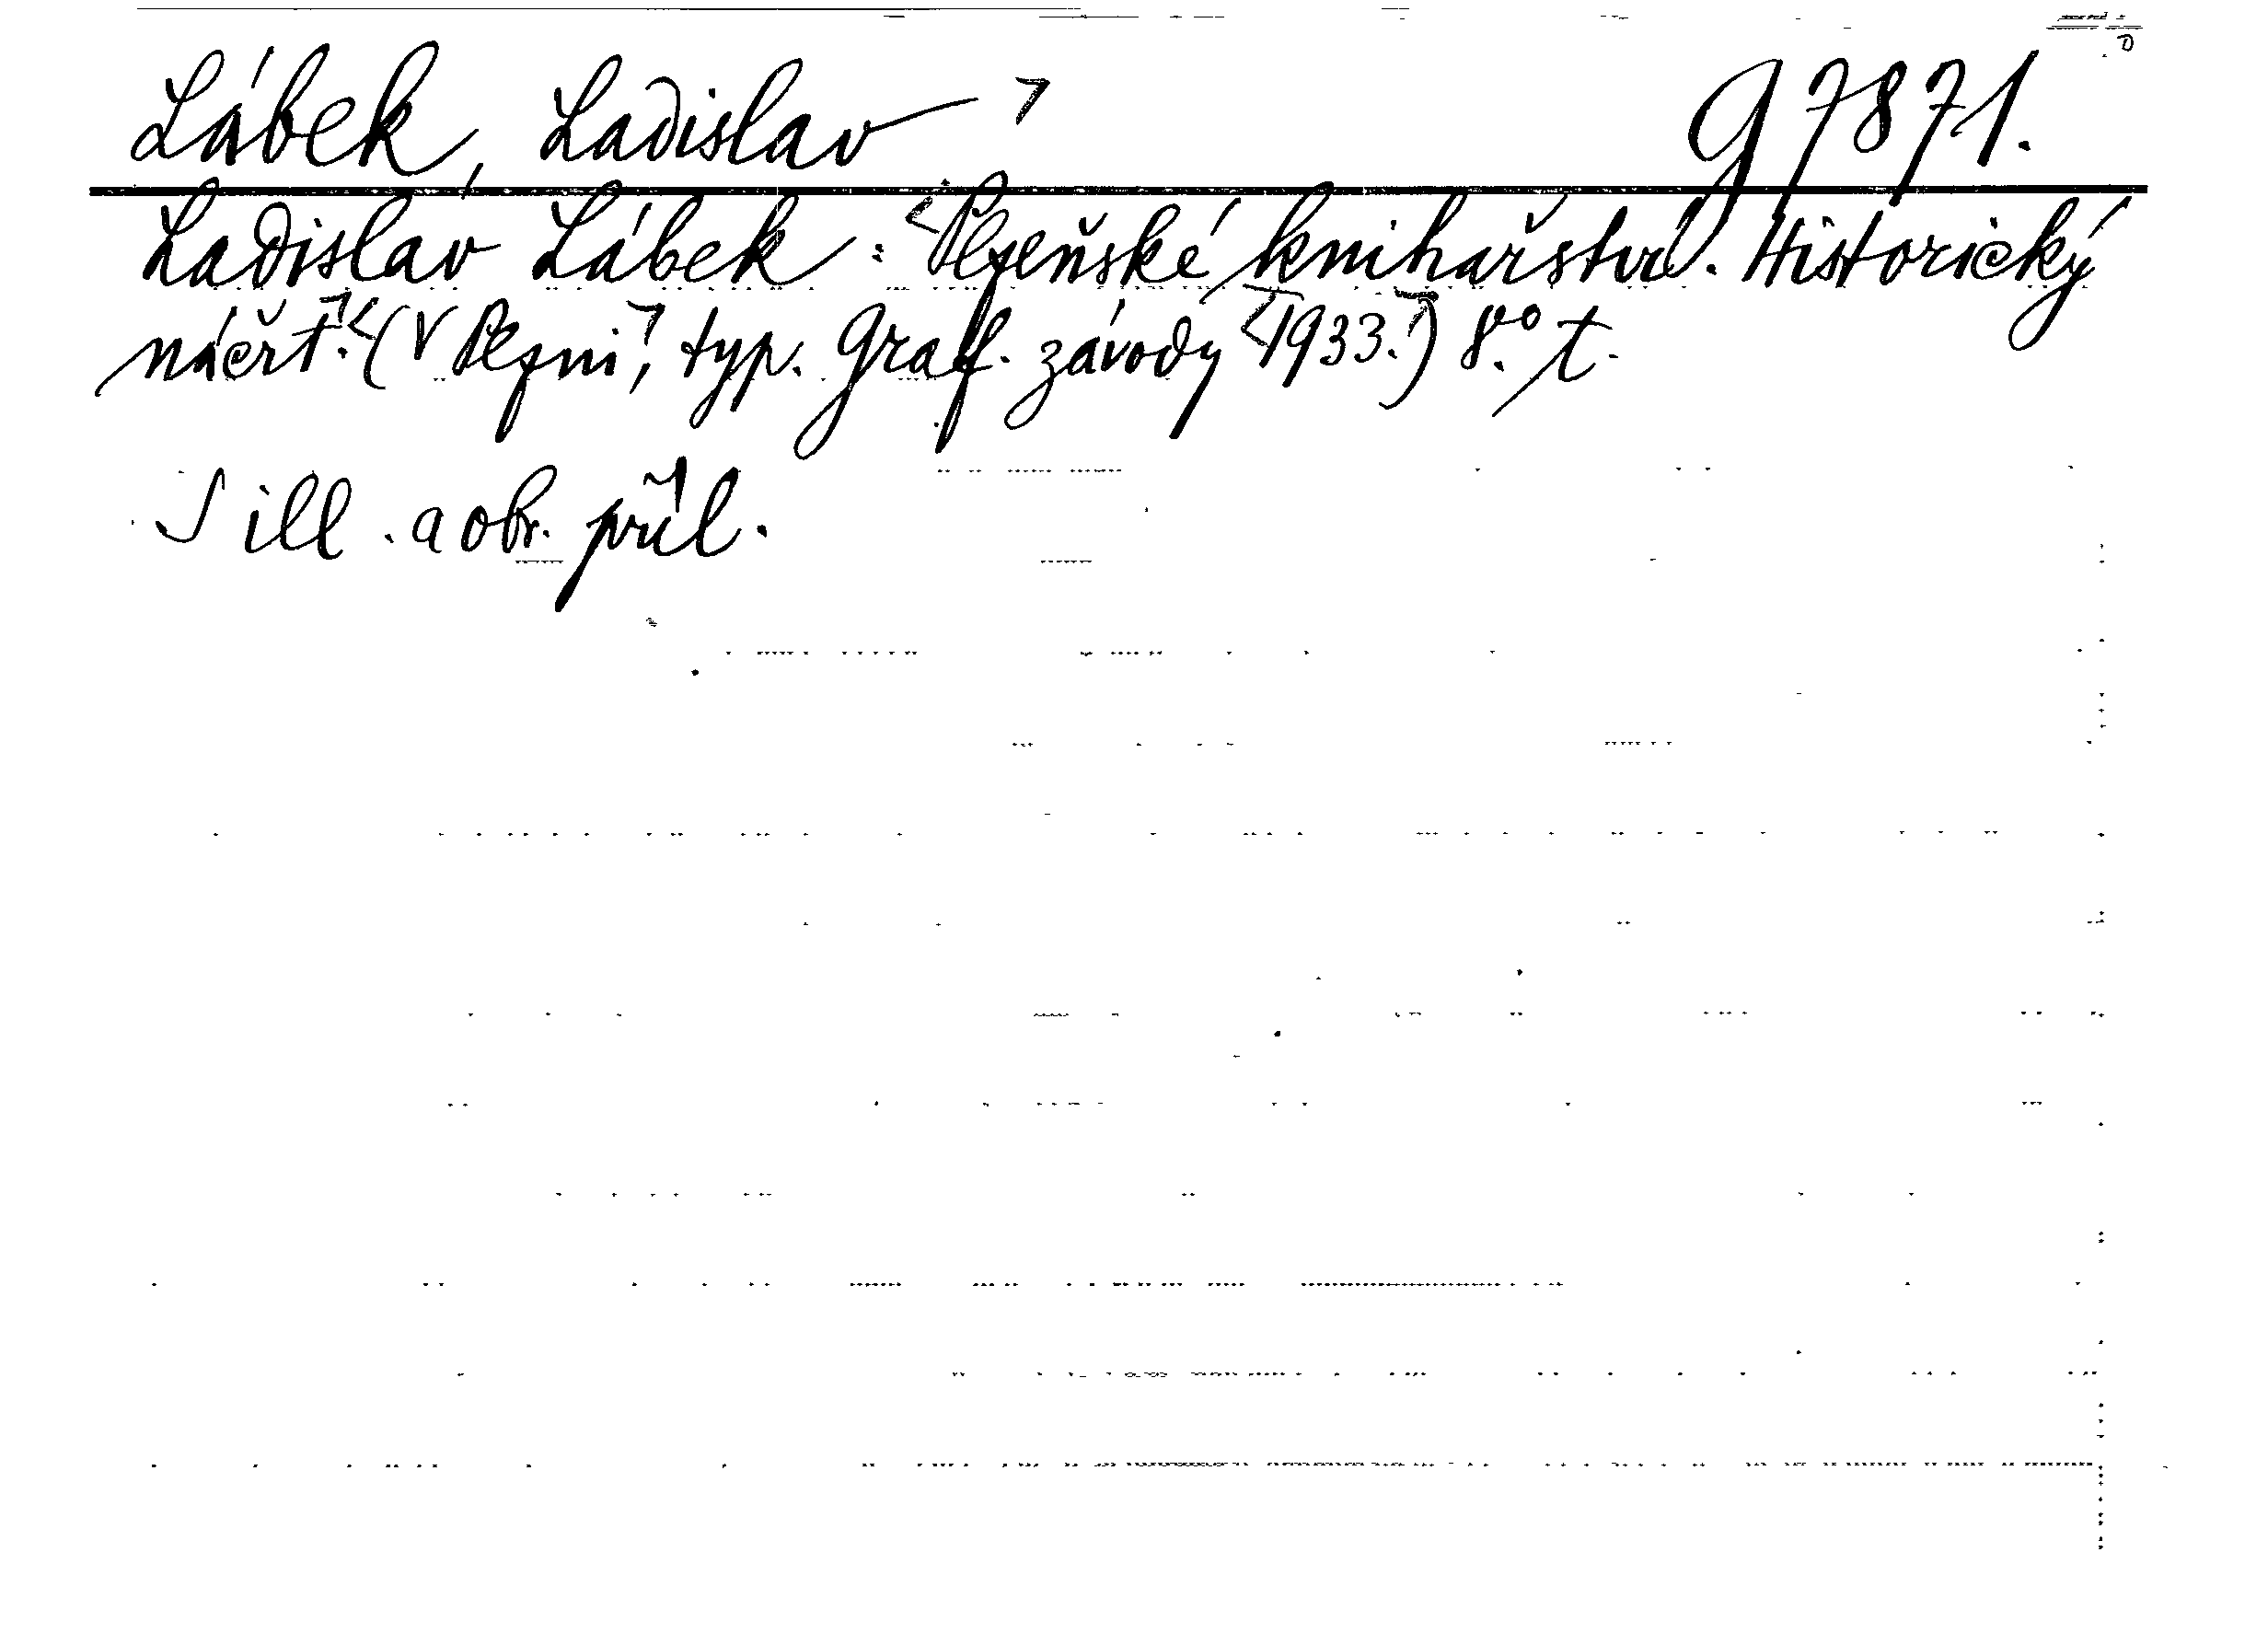 Lábek, Ladislav G 7871.
Ladislav Lábek: Plzeňské knihařství. Historický
náčrt. (V Plzni, typ. Graf. závody 1933.) 8.° t.
S ill. a obr. příl.